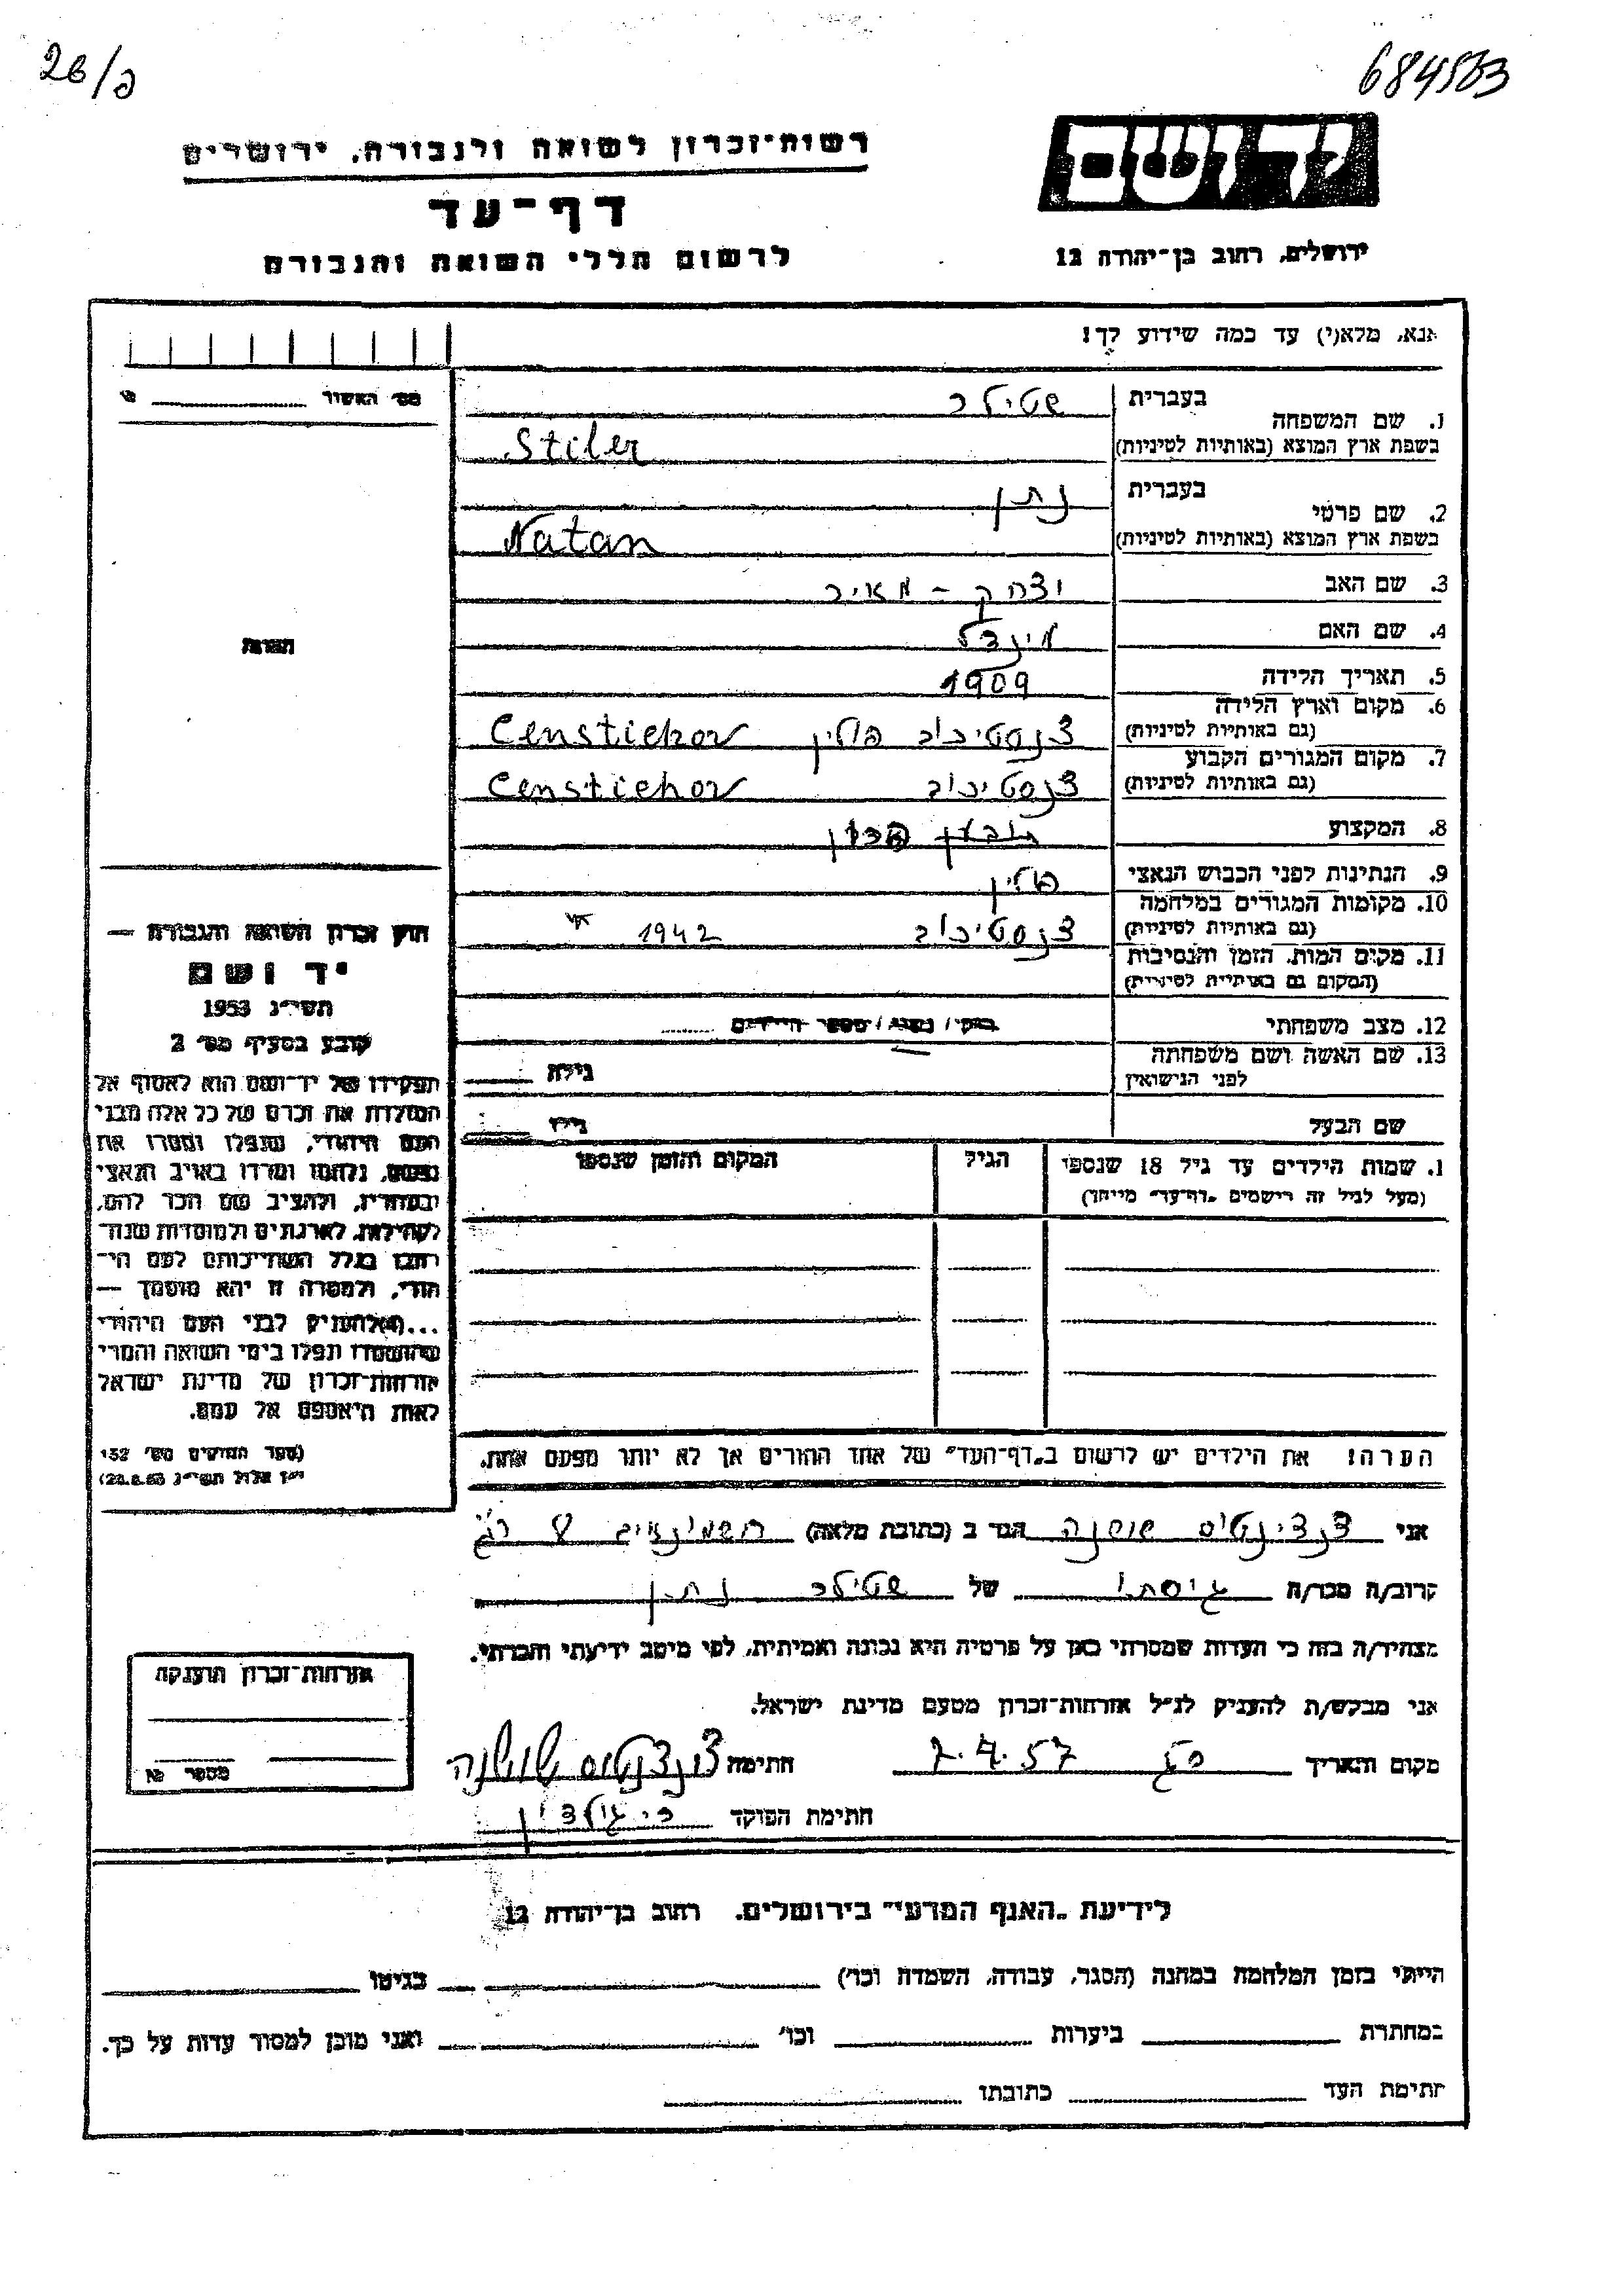 26/פ
684583
רשות־זכרון לשואה ולגבורה, ירושלים
דף־עד
לרשום חללי השואה והגבורה
יד ושם
ירושלים, רחוב בן־יהודה 12
אנא, מלא(י) עד כמה שידוע לך!
מס׳ האשור
1. שם המשפחה בעברית שטילר
בשפת ארץ המוצא (באותיות לטיניות) Stiler
2. שם פרטי בעברית נתן
בשפת ארץ המוצא (באותיות לטיניות) Natan
3. שם האב יצחק - מאיר
4. שם האם מינדל
5. תאריך הלידה 1909
6. מקום וארץ הלידה (גם באותיות לטיניות) צנסטיכוב פולין Censtichov
7. מקום המגורים הקבוע (גם באותיות לטיניות) צנסטיכוב Censtichov
8. המקצוע
9. הנתינות לפני הכבוש הנאצי פולין
10. מקומות המגורים במלחמה (גם באותיות לטיניות) צנסטיכוב 1942
11. מקום המות, הזמן והנסיבות
(המקום גם באותיות לטיניות)
12. מצב משפחתי רוק/ נשוא/ מספר הילדים
13. שם האשה ושם משפחתה לפני הנישואין גילה
שם הבעל גילו
1. שמות הילדים עד גיל 18 שנספו הגיל המקום והזמן שנספו
(מעל לגיל זה רישמים „דף־עד״ מייחד)
הערה! את הילדים יש לרשום ב„דף־העד״ של אחד ההורים אך לא יותר מפעם אחת.
הערות
חוק זכרון השואה והגבורה —
יד ושם
תשי״ג 1953
קובע בסעיף מס׳ 2
תפקידו של יד־ושם הוא לאסוף אל
המולדת את זכרם של כל אלה מבני
העם היהודי, שנפלו ומסרו את
נפשם, נלחמו ומרדו באויב הנאצי
ובעוזריו, ולהציב שם וזכר להם,
לקהילות, לארגונים ולמוסדות שנח־
רבו בגלל השתייכותם לעם הי־
הודי, ולמטרה זו יהא מוסמך —
...(4)להעניק לבני העם היהודי
שהושמדו ונפלו בימי השואה והמרי
אזרחות־זכרון של מדינת ישראל
לאות היאספם אל עמם.
(ספר החוקים מס׳ 132
י״ז אלול תשי״ג 28.8.53)
אני צנצינטוס שושנה הגר ב (כתובת מלאה) חשמונאים 8 ר״ג
קרוב/ה מכר/ה גיסתו של שטילר נתן
מצהיר/ה בזה כי העדות שמסרתי כאן על פרטיה היא נכונה ואמיתית, לפי מיטב ידיעתי והכרתי.
אני מבקש/ת להעניק לנ״ל אזרחות־זכרון מטעם מדינת ישראל.
מקום ותאריך רג 7.4.57 חתימה צנצינטוס שושנה
חתימת הפוקד
אזרחות־זכרון הוענקה
מספר
לידיעת „האגף המדעי״ בירושלים. רחוב בן־יהודה 12
הייתי בזמן המלחמה במחנה (הסגר, עבודה, השמדה וכו׳) בגיטו
במחתרת ביערות וכו׳ ואני מוכן למסור עדות על כך.
חתימת העד כתובתו